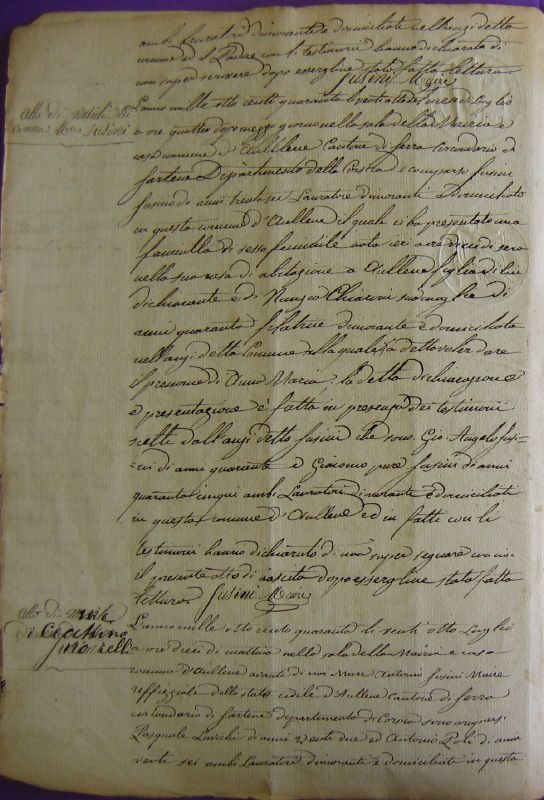 ambi lavoratori dimoranti e domiciliati nell'anzi detto
comune ed il Padre con li testimonii hanno dichiarato di
non saper scrivere dopo essergline stato fatta lettura
Susini Maire
Atto di nascita di
Susini
L'anno mille otto cento quaranta li venti otto del mese di Luglio
a ore quattro dopo mezzo giorno nella sala della Mairia e
casa comune d'Aullene Cantone di Serra Circondario di
Sartene Dipartimento della Corsica è comparso Susini
di anni trenta sei Lavoratore dimorante e domiciliato
in questo comune d'Aullene il quale ci ha presentato una
fanciulla di sesso feminile nata ieri a ore dieci di sera
nella sua casa di abitazione a Aullene figlia di lui
dichiarante e di Chiarini sua moglie di
anni quaranta filatrice dimorante e domiciliata
nell'anzi detto Comune alla quale ha detto voler dare
il prenome di Anna Maria, la detta dichiarazione e
e presentazione è fatta in presenza dei testimonii
scelti dall'anzi detto Susini che sono Gio: Angelo Susi-
ni di anni quaranta e Giacomo pure Susini di anni
quaranta cinqui ambi Lavoratori dimoranti e domiciliati
in questo comune d'Aullene ed in fatti con li
testimonii hanno dichiarato di non saper segnare
il presente atto di nascita dopo essergline stato fatta
lettura. Susini Maire
Atto di
di
L'anno mille otto cento quaranta li venti otto Luglio
a ore dieci di mattina nella sala della Mairia e casa
comune d'Aullene avanti di noi Marc' Antonio Susini Maire
uffiziale dello stato civile d'Aullene Cantone di Serra
circondario di Sartene dipartimento di Corsica sono comparsi
Pasquale di anni venti due ed Antonio Poli di anni
venti sei ambi Lavoratori dimoranti e domiciliati in questo